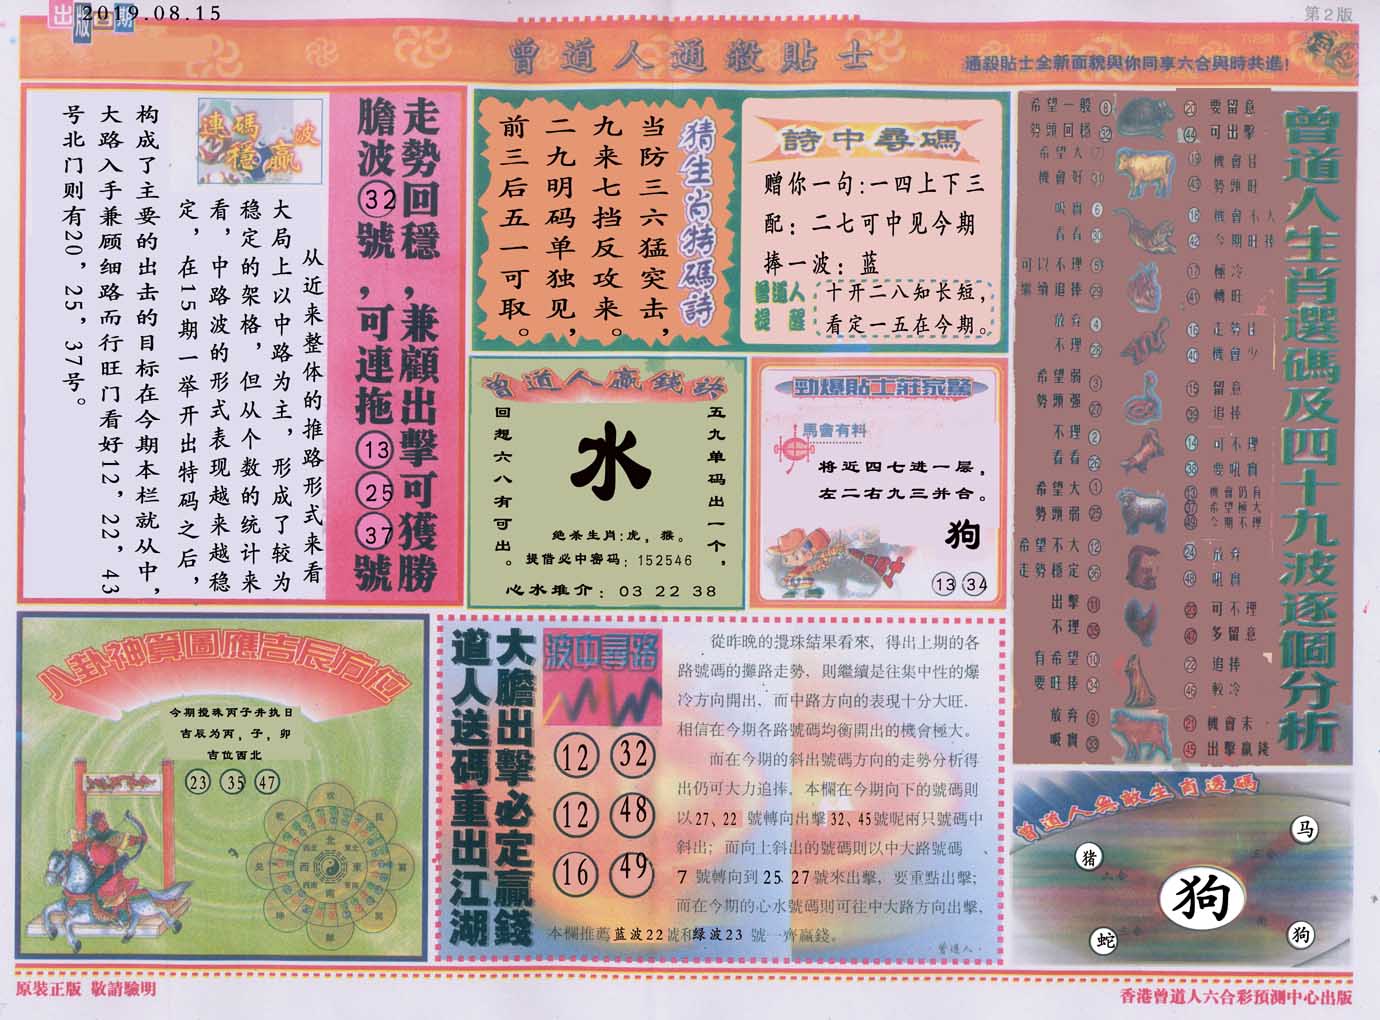 出版日期
2019.08.15
第2版
曾道人通殺貼士
通殺貼士全新面貌與你同享六合與時共進!
走勢回穩,兼顧出擊可獲勝
膽波32號,可連拖132537號
連碼穩贏波
从近来整体的推路形式来看
大局上以中路为主,形成了较为
稳定的架格,但从个数的统计来
看,中路波的形式表现越来越稳
定,在15期一举开出特码之后,
构成了主要的出击的目标在今期本栏就从中,
大路入手兼顾细路而行旺门看好12,22,43
号北门则有20,25,37号。
猜生肖特碼詩
当防三六猛突击,
九来七挡反攻来。
二九明码单独见,
前三后五一可取。
詩中尋碼
赠你一句:一四上下三
配:二七可中见今期
捧一波:蓝
曾道人提醒
十开二八知长短,
看定一五在今期。
曾道人贏錢詩
五九单码出一个,
回想六八有可出。
水
绝杀生肖:虎,猴。
提借必中密码:152546
心水推介:03 22 38
勁爆貼士莊家驚
馬會有料
将近四七进一层,
左二右九三并合。
狗
13 34
曾道人生肖選碼及四十九波逐個分析
希望一般 8
勢頭回穩 32
20 要留意
44 可出擊
希望大 7
機會好 31
19 機會佳
43 勢頭旺
吸實 6
看看 30
18 機會不大
42 今期旺捧
可以不理 5
繼續追捧 29
17 極冷
41 轉旺
放弃 4
不理 28
16 走勢佳
40 機會少
希望弱 3
勢頭强 27
15 留意
39 追捧
不理 2
看看 26
14 可不理
38 要吼實
希望大 1
勢頭弱 25
13 機會仍有
37 希望極大
49 今期不理
希望不大 12
走勢穩定 36
24 放弃
48 吼實
出擊 11
不理 35
23 可不理
47 多留意
有希望 10
要旺捧 34
22 追捧
46 較冷
放弃 9
吸實 33
21 機會末
45 出擊贏錢
八卦神算圖應吉辰方位
今期搅珠丙子井执日
吉辰为丙,子,卯
吉位西北
23 35 47
北
東
南
西
大膽出擊必定贏錢
道人送碼重出江湖
波中尋路
12 32
12 48
16 49
從昨晚的攪珠結果看來,得出上期的各
路號碼的攤路走勢,則繼續是往集中性的爆
冷方向開出,而中路方向的表現十分大旺.
相信在今期各路號碼均衡開出的機會極大。
而在今期的斜出號碼方向的走勢分析得
出仍可大力追捧,本欄在今期向下的號碼則
以27、22 號轉向出擊32、45號呢兩只號碼中
斜出;而向上斜出的號碼則以中大路號碼、
7 號轉向到 25 27號來出擊,要重點出擊;
而在今期的心水號碼則可往中大路方向出擊,
本欄推薦蓝波22號和绿波23 號一齊贏錢。
曾道人.
曾道人無敵生肖透碼
马
猪
狗
蛇
狗
原裝正版 敬請驗明
香港曾道人六合彩預測中心出版